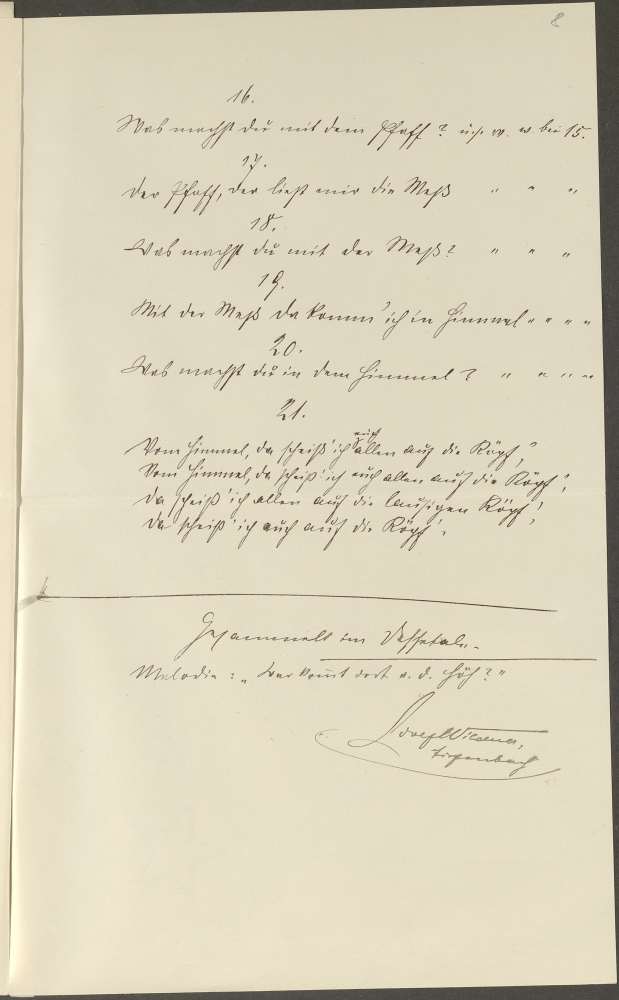 8
16.
Was machst du mit dem Pfaff? u. s. w. w. bei 15.
17.
Der Pfaff, der ließt mir die Meß " " "
18.
Was machst du mit der Meß? " " "
19.
Mit der Meß da komm' ich in Himmel " " " "
20.
Was machst du in dem Himmel? " " " "
21.
euch
Vom Himmel, da scheiß' ich allen auf die Köpf',
Vom Himmel, da scheiß' ich euch allen auf die Köpf',
Da scheiß' ich allen auf die lausigen Köpf'!
Da scheiß' ich euch auf die Köpf'.
Gesammelt im
Melodie: „Wer kommt dort v. d. Höh'?"
Josef